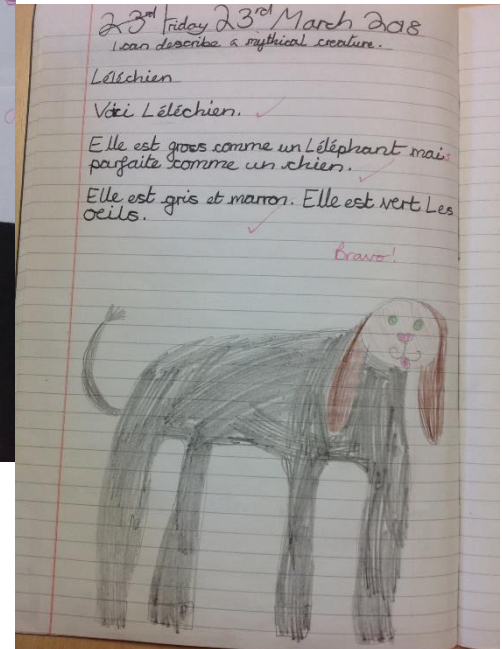 23rd Friday 23rd March 2018
I can describe a mythical creature.
Léléchien
Voici Léléchien.
Elle est gross comme un Léléphant mais
parfaite comme un chien.
Elle est gris et marron. Elle est vert Les
oeils.
Bravo!